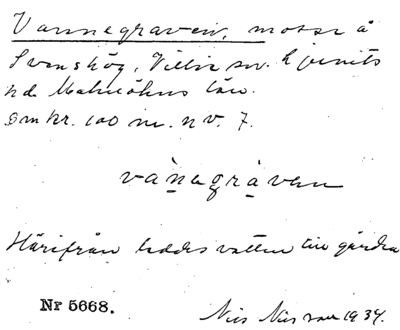 Vannegraven, mosse å
Svenshög, Villie sn. Ljunits
hd. Malmöhus län.
omkr. 100 m. n v. 7.
vånegråven
Härifrån leddes vatten till gården
Nr 5668.
Nils Nilsson 1934.